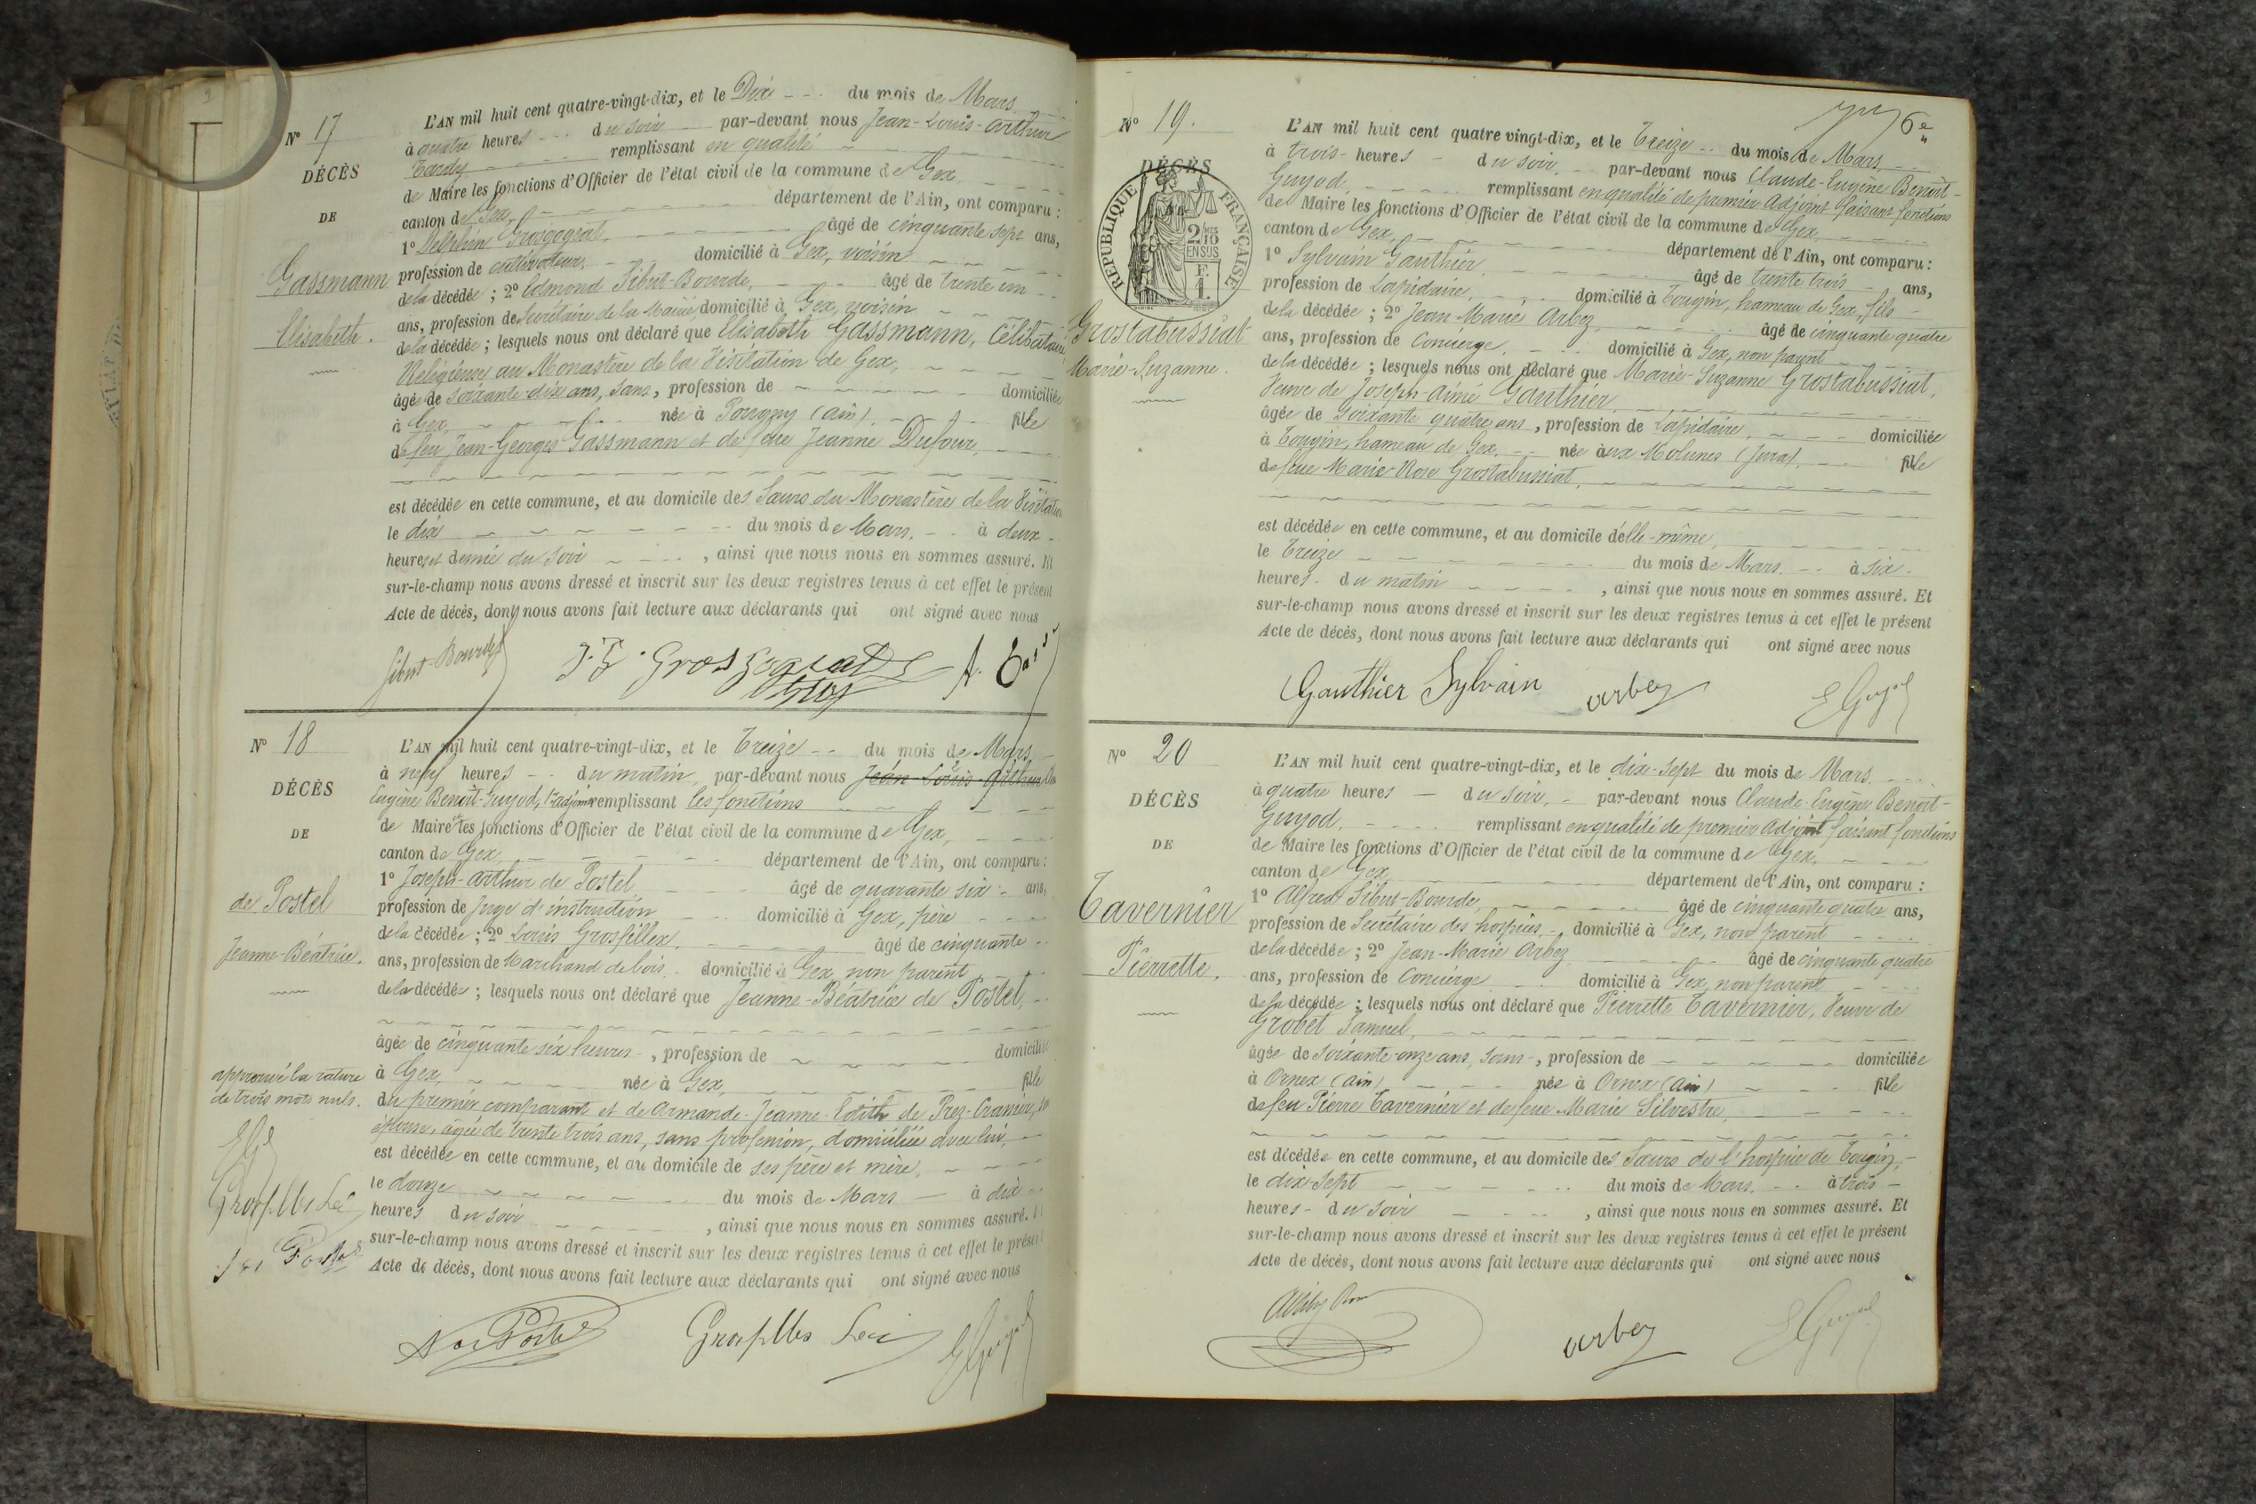 N° 17
DÉCÈS
DE
Gassmann
Elisabeth.
L'AN mil huit cent quatre-vingt-dix, et le Dix du mois de Mars
à quatre heures du soir par-devant nous Jean-Louis-Arthur
Tardy remplissant en qualité
de Maire les fonctions d'Officier de l'état civil de la commune de Gex
canton de Gex département de l'Ain, ont comparu :
1° Delphin Grosgogeat âgé de cinquante sept ans,
profession de cultivateur domicilié à Gex, voisin
de la décédée ; 2° Edmond Sibut-Bourde, âgé de trente un
ans, profession de Secrétaire de la Mairie, domicilié à Gex, voisin
de la décédée ; lesquels nous ont déclaré que Elisabeth Gassmann, Célibataire
Religieuse au Monastère de la Visitation de Gex,
âgée de soixante-dix ans, sans, profession de domiciliée
à Gex, née à Pougny (Ain), fille
de feu Jean-Georges Gassmann et de feue Jeanne Dufour,
est décédée en cette commune, et au domicile des Sœurs du Monastère de la Visitation
le dix du mois de Mars. à deux
heures et demie du soir , ainsi que nous nous en sommes assuré. Et
sur-le-champ nous avons dressé et inscrit sur les deux registres tenus à cet effet le présent
Acte de décès, dont nous avons fait lecture aux déclarants qui ont signé avec nous
Sibut-Bourde
N° 18
DÉCÈS
DE
de Postel
Jeanne-Béatrice.
approuvé la rature
de trois mots nuls.
L'AN mil huit cent quatre-vingt-dix, et le Treize du mois de Mars
à neuf heures du matin par-devant nous Jean-Louis-Arthur
Eugène Benoît-Guyod, 1er adjoint remplissant les fonctions
de Maire et les fonctions d'Officier de l'état civil de la commune de Gex,
canton de Gex département de l'Ain, ont comparu :
1° Joseph-Arthur de Postel âgé de quarante six ans,
profession de Juge d'instruction domicilié à Gex, père
de la décédée ; 2° Louis Grosfillex. âgé de cinquante
ans, profession de Marchand de bois domicilié à Gex, non parent
de la décédée ; lesquels nous ont déclaré que Jeanne-Béatrice de Postel,
âgée de cinquante six heures , profession de domiciliée
à Gex, née à Gex, fille
du premier comparant et de Armande-Jeanne-Edith de Prez-Cramier, son
épouse, âgée de trente trois ans, sans profession, domiciliée avec lui,
est décédée en cette commune, et au domicile de ses père et mère,
le douze du mois de Mars à dix
heures du soir , ainsi que nous nous en sommes assuré. Et
sur-le-champ nous avons dressé et inscrit sur les deux registres tenus à cet effet le présent
Acte de décès, dont nous avons fait lecture aux déclarants qui ont signé avec nous
6e
N° 19.
DÉCÈS
RÉPUBLIQUE FRANÇAISE
2/10 EN SUS
Grostabussiat
Marie-Suzanne.
L'AN mil huit cent quatre vingt-dix, et le Treize du mois de Mars
à trois heures du soir. par-devant nous Claude-Eugène Benoît-
Guyod, remplissant en qualité de premier Adjoint faisant fonctions
de Maire les fonctions d'Officier de l'état civil de la commune de Gex,
canton de Gex, département de l'Ain, ont comparu :
1° Sylvain Gauthier, âgé de trente trois ans,
profession de Lapidaire, domicilié à Tougin, hameau de Gex, fils
de la décédée ; 2° Jean-Marie Arbez, âgé de cinquante quatre
ans, profession de Concierge, domicilié à Gex, non parent
de la décédée ; lesquels nous ont déclaré que Marie-Suzanne Grostabussiat,
Veuve de Joseph-Aimé Gauthier,
âgée de soixante quatre ans , profession de Lapidaire, domiciliée
à Tougin, hameau de Gex, née aux Molunes (Jura), fille
de feue Marie-Rose Grostabussiat,
est décédée en cette commune, et au domicile d'elle-même,
le Treize du mois de Mars. à six
heures du matin , ainsi que nous nous en sommes assuré. Et
sur-le-champ nous avons dressé et inscrit sur les deux registres tenus à cet effet le présent
Acte de décès, dont nous avons fait lecture aux déclarants qui ont signé avec nous
Gauthier Sylvain arbez E Guyod
N° 20
DÉCÈS
DE
Tavernier
Pierrette.
L'AN mil huit cent quatre-vingt-dix, et le dix-sept du mois de Mars
à quatre heures du soir, par-devant nous Claude-Eugène Benoît-
Guyod, remplissant en qualité de premier Adjoint faisant fonctions
de Maire les fonctions d'Officier de l'état civil de la commune de Gex,
canton de Gex département de l'Ain, ont comparu :
1° Alfred Sibut-Bourde, âgé de cinquante quatre ans,
profession de Secrétaire des hospices, domicilié à Gex, non parent
de la décédée ; 2° Jean-Marie Arbez âgé de cinquante quatre
ans, profession de Concierge domicilié à Gex, non parent
de la décédée ; lesquels nous ont déclaré que Pierrette Tavernier, Veuve de
Grobet Samuel,
âgée de soixante-onze ans, sans , profession de domiciliée
à Ornex (Ain) née à Ornex (Ain) fille
de feu Pierre Tavernier et de feue Marie Silvestre,
est décédée en cette commune, et au domicile des Sœurs de l'hospice de Tougin,
le dix-sept du mois de Mars. à trois
heures du soir , ainsi que nous nous en sommes assuré. Et
sur-le-champ nous avons dressé et inscrit sur les deux registres tenus à cet effet le présent
Acte de décès, dont nous avons fait lecture aux déclarants qui ont signé avec nous
arbez E Guyod